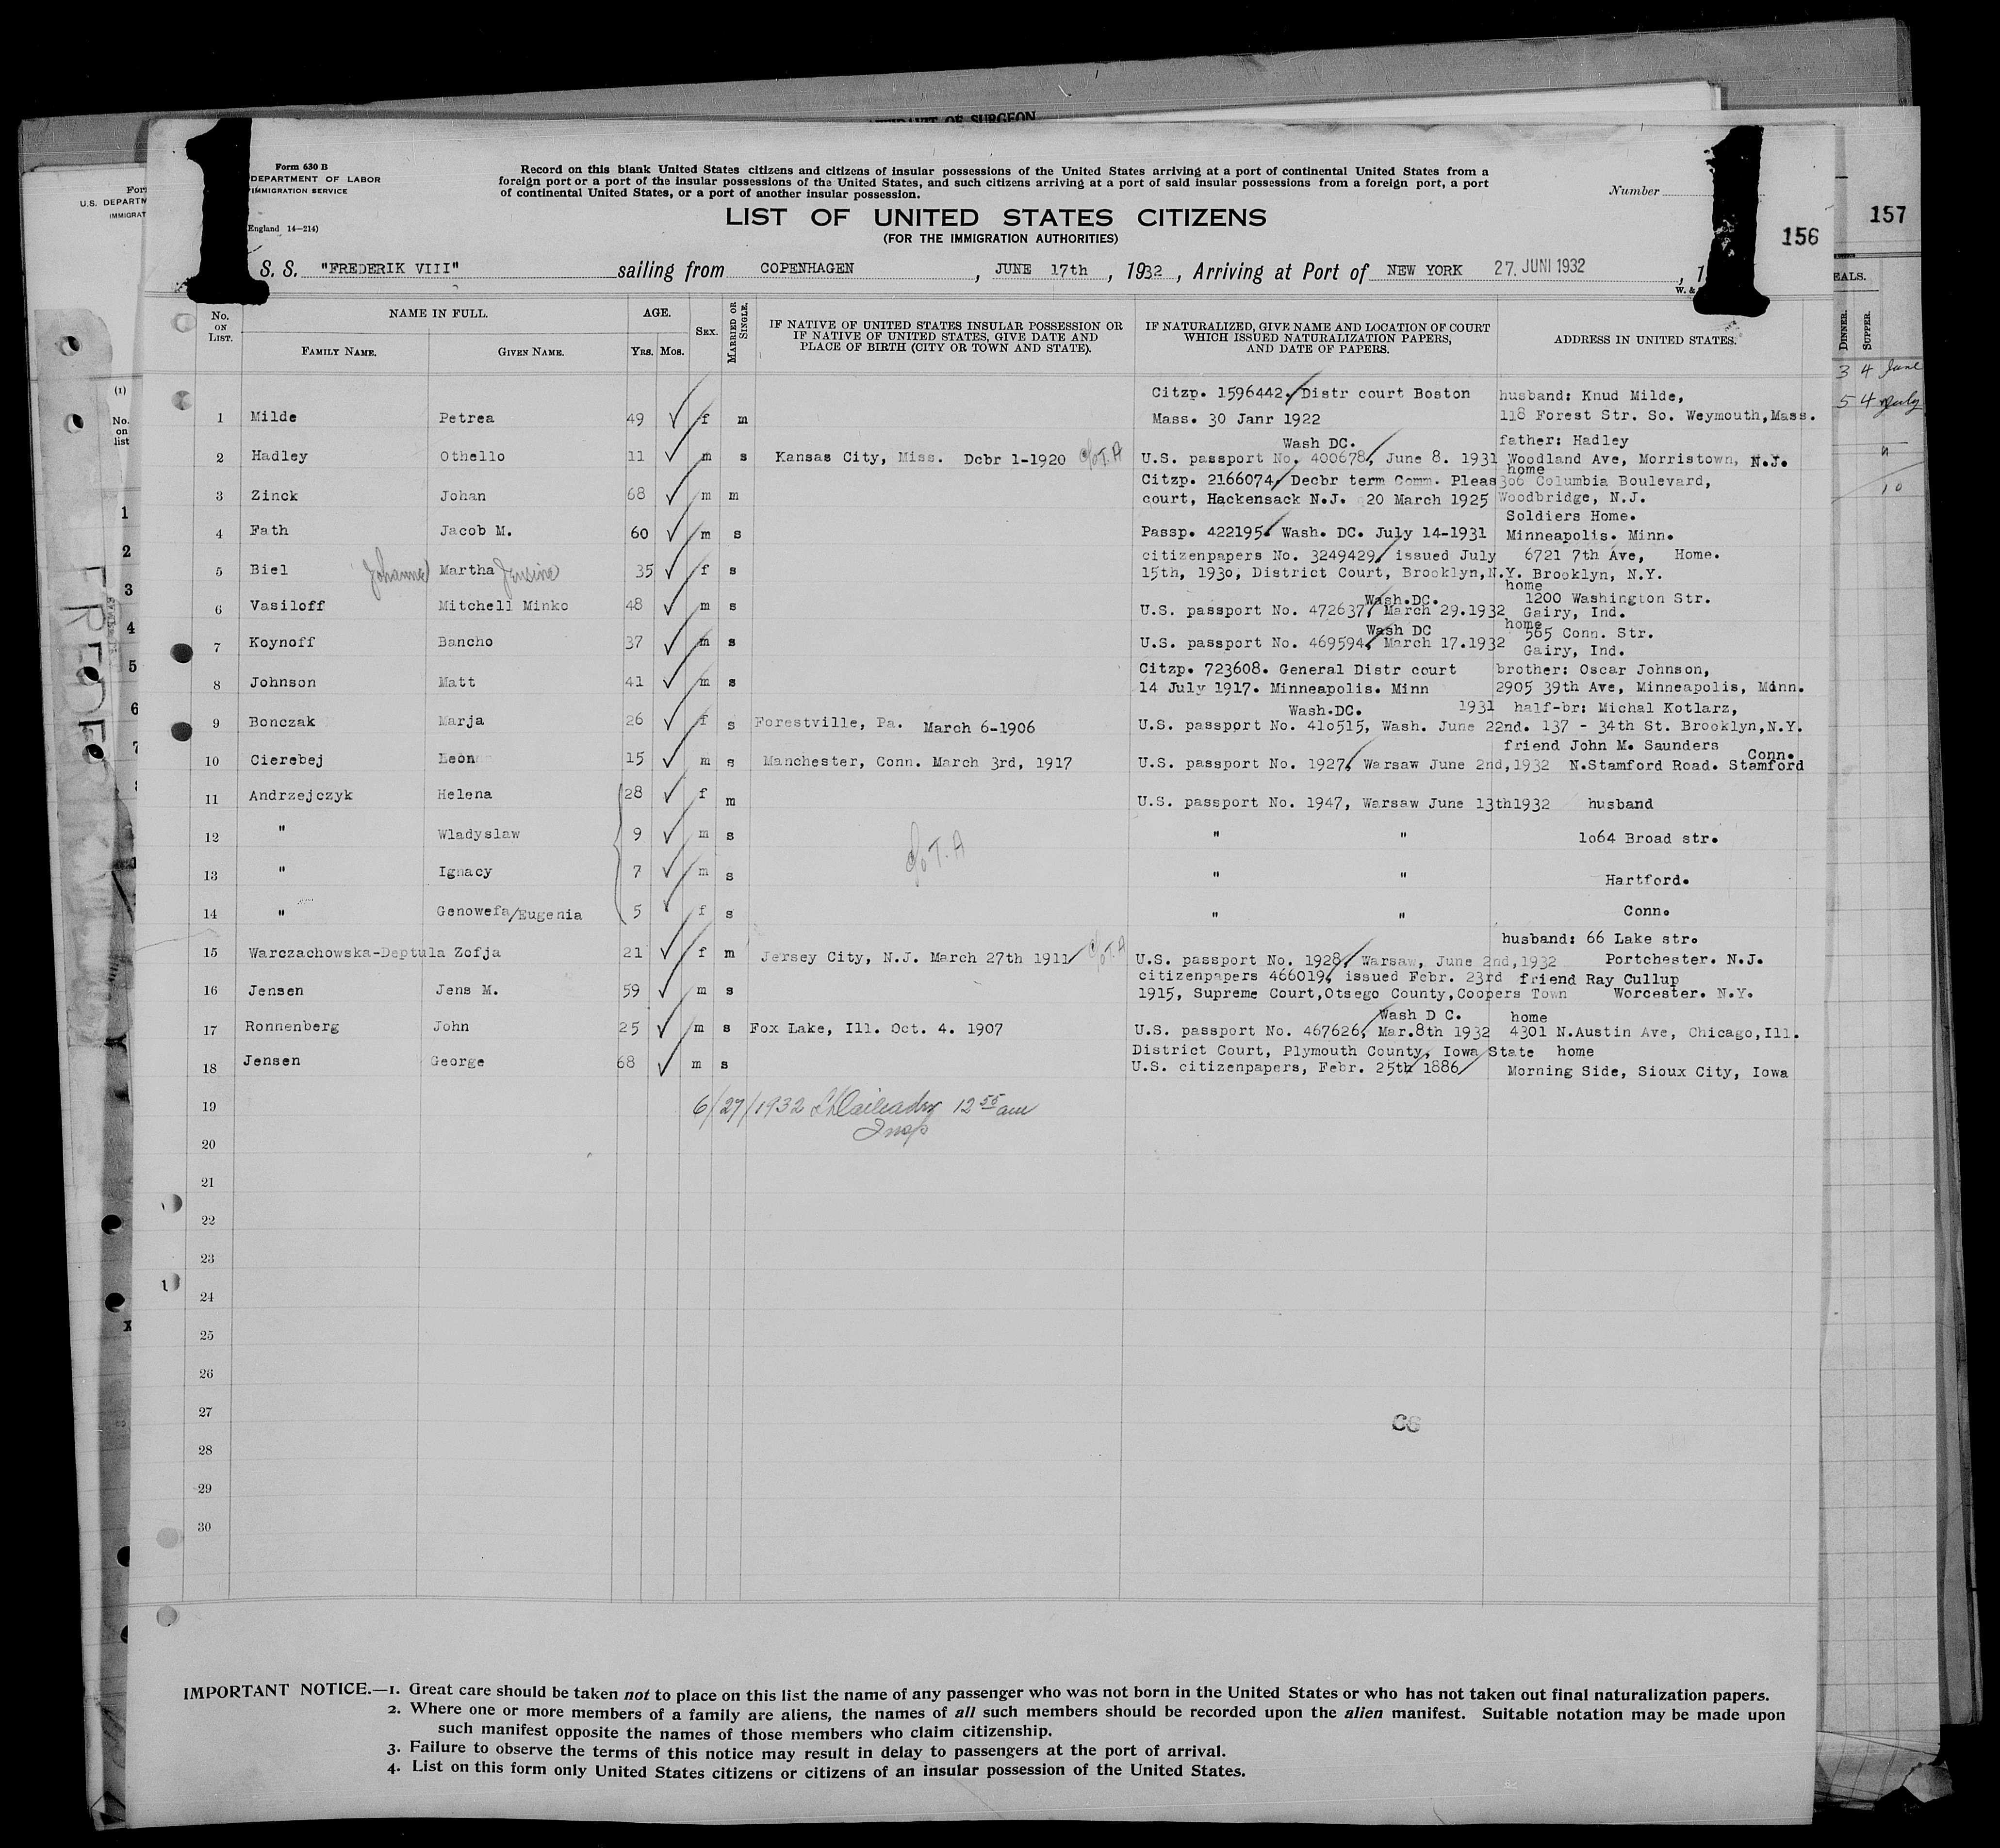 AFFIDAVIT OF SURGEON
Form 630 B
DEPARTMENT OF LABOR
IMMIGRATION SERVICE
England 14—214)
Record on this blank United States citizens and citizens of insular possessions of the United States arriving at a port of continental United States from a
foreign port or a port of the insular possessions of the United States, and such citizens arriving at a port of said insular possessions from a foreign port, a port
of continental United States, or a port of another insular possession.
Number
LIST OF UNITED STATES CITIZENS
(FOR THE IMMIGRATION AUTHORITIES)
156
157
S. S. "FREDERIK VIII" sailing from COPENHAGEN, JUNE 17th, 1932, Arriving at Port of NEW YORK 27. JUNI 1932, 1
No. ON LIST. NAME IN FULL. AGE. SEX. MARRIED OR SINGLE. IF NATIVE OF UNITED STATES INSULAR POSSESSION OR IF NATIVE OF UNITED STATES, GIVE DATE AND PLACE OF BIRTH (CITY OR TOWN AND STATE). IF NATURALIZED, GIVE NAME AND LOCATION OF COURT WHICH ISSUED NATURALIZATION PAPERS, AND DATE OF PAPERS. ADDRESS IN UNITED STATES.
FAMILY NAME. GIVEN NAME. Yrs. Mos.
Citzp. 1596442. Distr court Boston husband: Knud Milde,
1 Milde Petrea 49 f m Mass. 30 Janr 1922 118 Forest Str. So. Weymouth, Mass.
Wash DC. father: Hadley
2 Hadley Othello 11 m s Kansas City, Miss. Dcbr 1-1920 c/o T.A U.S. passport No. 400678, June 8. 1931 Woodland Ave, Morristown, N.J.
home
Citzp. 2166074, Decbr term Comm. Pleas 306 Columbia Boulevard,
3 Zinck Johan 68 m m court, Hackensack N.J. 20 March 1925 Woodbridge, N.J.
Soldiers Home.
4 Fath Jacob M. 60 m s Passp. 422195. Wash. DC. July 14-1931 Minneapolis. Minn.
citizenpapers No. 3249429, issued July 6721 7th Ave, Home.
5 Biel Johanne Martha Jensine 35 f s 15th, 1930, District Court, Brooklyn, N.Y. Brooklyn, N.Y.
home
Wash.DC. 1200 Washington Str.
6 Vasiloff Mitchell Minko 48 m s U.S. passport No. 472637, March 29.1932 Gairy, Ind.
home
Wash DC 565 Conn. Str.
7 Koynoff Bancho 37 m s U.S. passport No. 469594, March 17.1932 Gairy, Ind.
Citzp. 723608. General Distr court brother: Oscar Johnson,
8 Johnson Matt 41 m s 14 July 1917. Minneapolis. Minn 2905 39th Ave, Minneapolis, Minn.
Wash.DC. 1931 half-br: Michal Kotlarz,
9 Bonczak Marja 26 f s Forestville, Pa. March 6-1906 U.S. passport No. 410515, Wash. June 22nd. 137 - 34th St. Brooklyn, N.Y.
friend John M. Saunders Conn.
10 Cierebej Leon 15 m s Manchester, Conn. March 3rd, 1917 U.S. passport No. 1927, Warsaw June 2nd, 1932 N.Stamford Road. Stamford
11 Andrzejczyk Helena 28 f m U.S. passport No. 1947, Warsaw June 13th1932 husband
12 " Wladyslaw 9 m s c/o T.A " " 1064 Broad str.
13 " Ignacy 7 m s " " Hartford.
14 " Genowefa/Eugenia 5 f s " " Conn.
husband: 66 Lake str.
15 Warczachowska-Deptula Zofja 21 f m Jersey City, N.J. March 27th 1911 c/o T.A U.S. passport No. 1928, Warsaw, June 2nd, 1932 Portchester. N.J.
citizenpapers 466019, issued Febr. 23rd friend Ray Cullup
16 Jensen Jens M. 59 m s 1915, Supreme Court, Otsego County, Coopers Town Worcester. N.Y.
Wash D C. home
17 Ronnenberg John 25 m s Fox Lake, Ill. Oct. 4. 1907 U.S. passport No. 467626, Mar.8th 1932 4301 N.Austin Ave, Chicago, Ill.
District Court, Plymouth County, Iowa State home
18 Jensen George 68 m s U.S. citizenpapers, Febr. 25th 1886 Morning Side, Sioux City, Iowa
19 6/27/1932 12 55 am
Insp
20
21
22
23
24
25
26
27
28
29
30
IMPORTANT NOTICE.—1. Great care should be taken not to place on this list the name of any passenger who was not born in the United States or who has not taken out final naturalization papers.
2. Where one or more members of a family are aliens, the names of all such members should be recorded upon the alien manifest. Suitable notation may be made upon
such manifest opposite the names of those members who claim citizenship.
3. Failure to observe the terms of this notice may result in delay to passengers at the port of arrival.
4. List on this form only United States citizens or citizens of an insular possession of the United States.